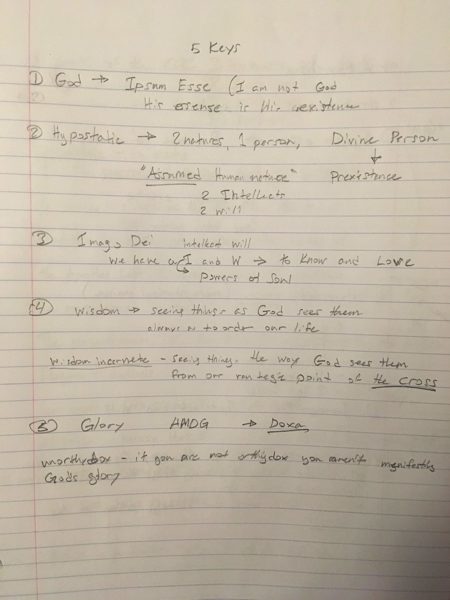 5 Keys
① God → Ipsum Esse (I am not God
His essense is His existence
② Hypostatic → 2 natures, 1 person, Divine Person
↓
"Assumed Human nature" Prexistence
2 Intellects
2 will
③ Imago Dei intellect will
We have an I and W → to Know and Love
↳ Powers of Soul
④ Wisdom → seeing things as God sees them
always to order our life
Wisdom Incarnate - seeing things the way God sees them
from our vantage point of the cross
⑤ Glory AMDG → Doxa
- if you are not orthydox you aren't
God's glory